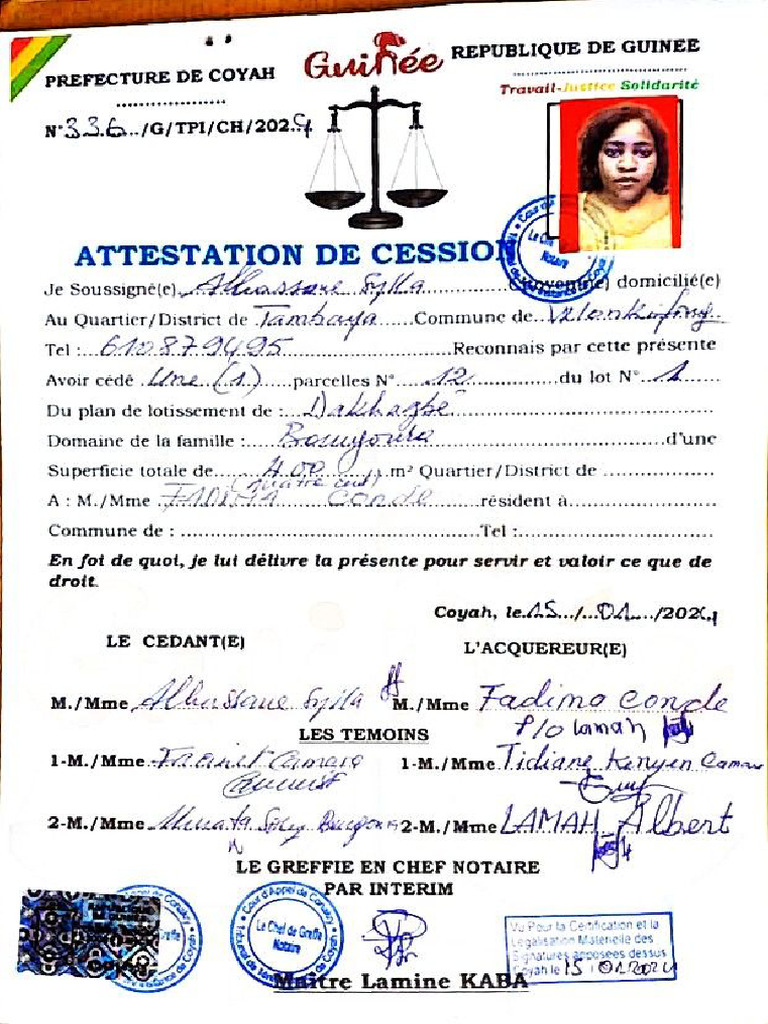 Guinée
REPUBLIQUE DE GUINEE
PREFECTURE DE COYAH
Travail-Justice Solidarité
N°336/G/TPI/CH/2024
ATTESTATION DE CESSION
Je Soussigné(e) Alhassane Sylla Citoyen(ne) domicilié(e)
Au Quartier/District de Tambaya Commune de
Tel : 610879495 Reconnais par cette présente
Avoir cédé Une (1) parcelles N° 12 du lot N° 1
Du plan de lotissement de : Dakhagbé
Domaine de la famille : d'une
Superficie totale de 400 m² Quartier/District de
(quatre cent)
A : M./Mme FADIMA Conde résident à
Commune de : Tel :
En foi de quoi, je lui délivre la présente pour servir et valoir ce que de
droit.
Coyah, le 15/01/2024
LE CEDANT(E)
L'ACQUEREUR(E)
M./Mme Alhassane Sylla
M./Mme Fadima Conde
P/o Lamah
LES TEMOINS
1-M./Mme Camara
1-M./Mme Tidiane Camara
2-M./Mme
2-M./Mme LAMAH Albert
LE GREFFIE EN CHEF NOTAIRE
PAR INTERIM
Cour d'Appel de Conakry
Le Chef de Greffe
Notaire
Vu Pour la Certification et la
Légalisation Matérielle des
Signatures apposées dessus
Coyah le 15/01/2024
Maître Lamine KABA